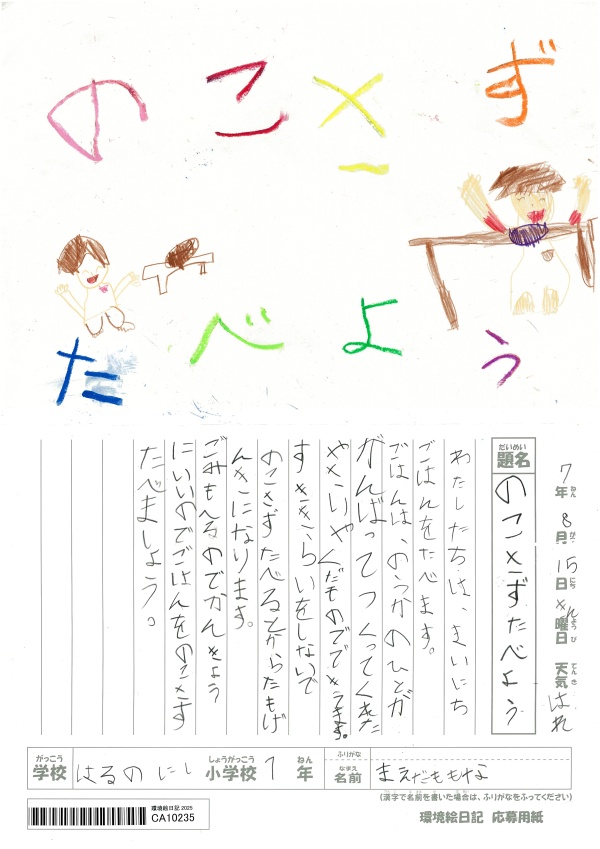 のこさず
たべよう
7年8月15日きん曜日 天気 はれ
ねん がつ にち ようび てんき
だいめい
題名 のこさずたべよう
わたしたちは、まいにち
ごはんをたべます。
ごはんは、のうかのひとが
がんばってつくってくれた
やさいやくだものでできてます。
すききらいをしないで
のこさずたべるとからだもげ
んきになります。
ごみもへるのでかんきょう
にいいのでごはんをのこさず
たべましょう。
がっこう しょうがっこう ねん ふりがな
学校 はるのにし 小学校 1 年 なまえ 名前 まえだももな
(漢字で名前を書いた場合は、ふりがなをふってください)
環境絵日記 2025
CA10235
環境絵日記 応募用紙